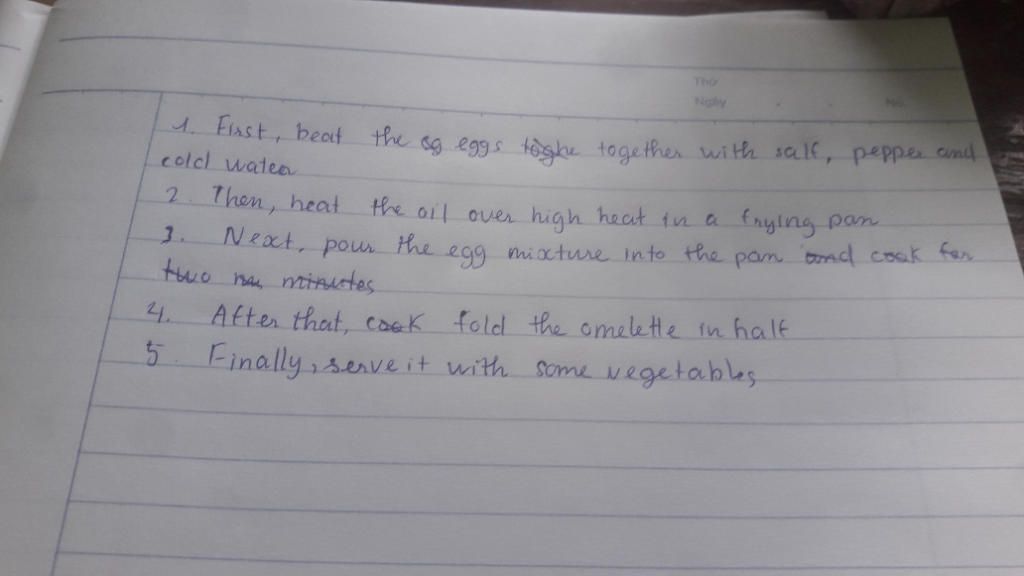 Thứ
Ngày No.
1. First, beat the eg eggs toghe together with salt, pepper and
cold water
2. Then, heat the oil over high heat in a frying pan
3. Next, pour the egg mixture into the pan and cook for
two minutes
4. After that, cook fold the omelette in half
5 Finally, serve it with some vegetables